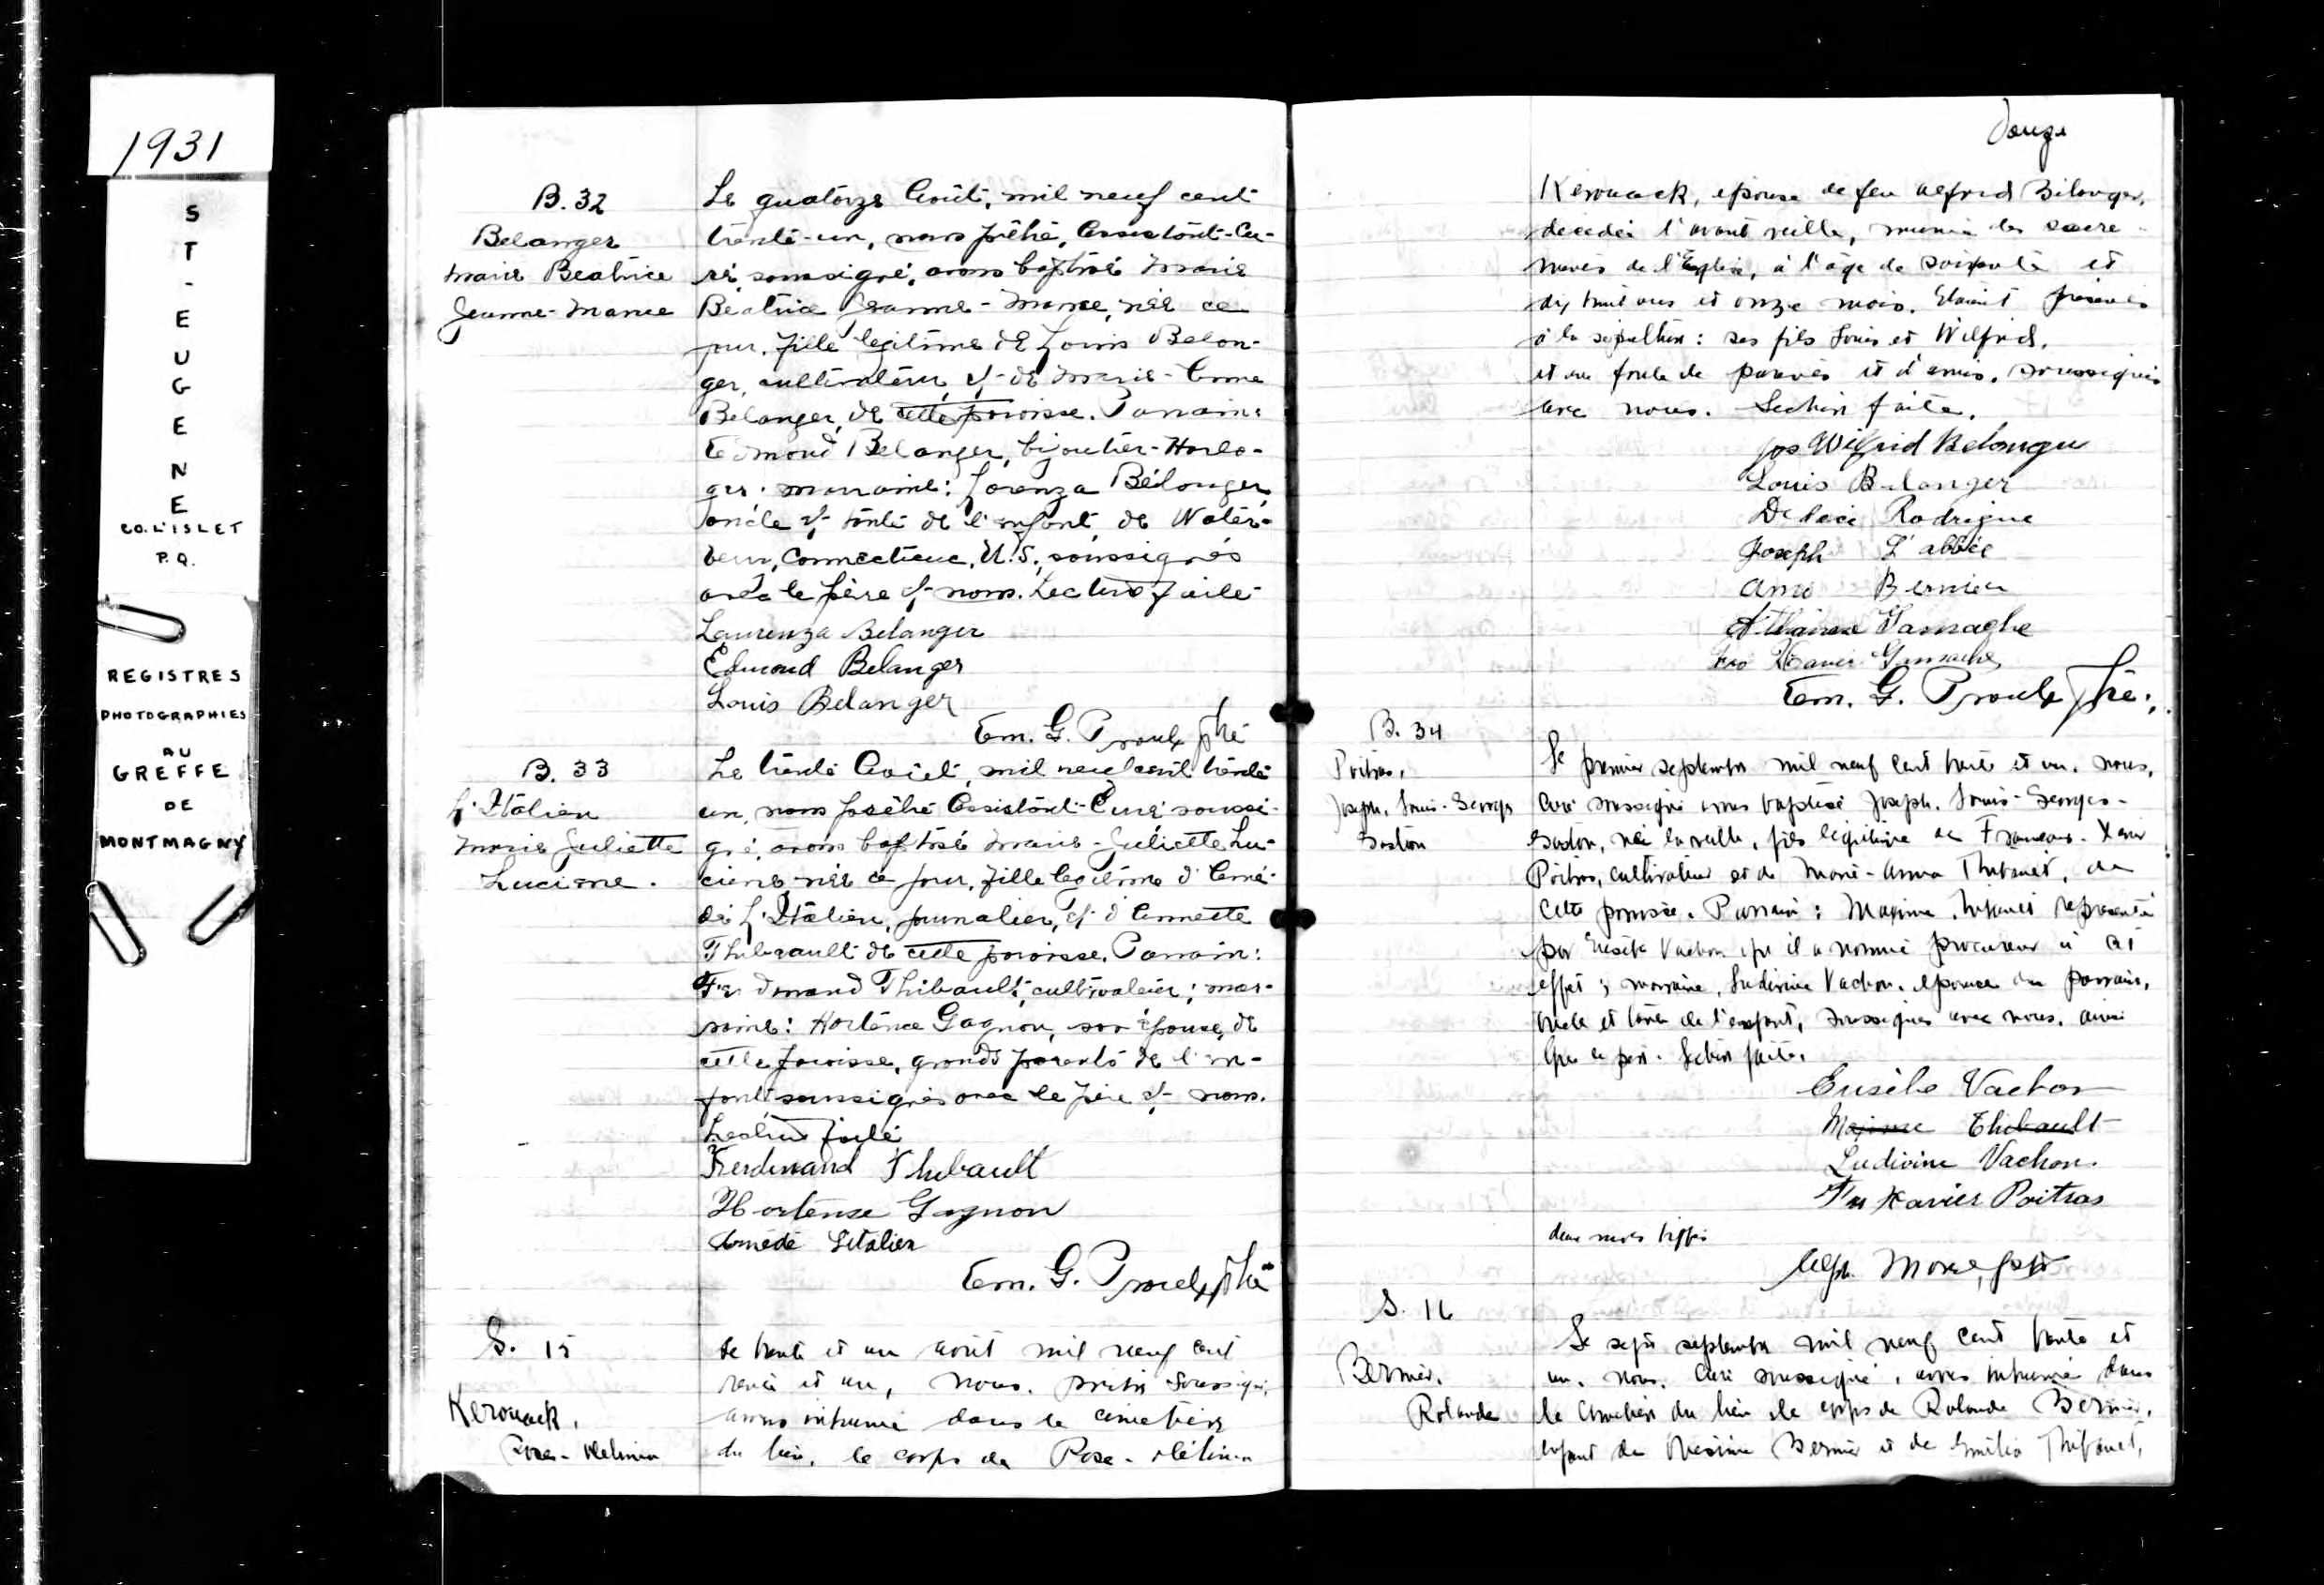 1931
ST-EUGENE
CO. L'ISLET
P.Q.
REGISTRES
PHOTOGRAPHIES
AU
GREFFE
DE
MONTMAGNY
B. 32
Belanger
Marie Beatrice
Jeanne-Mance
Le quatorze Août, mil neuf cent
trente-un, nous prêtre, Assistant-Cu-
ré soussigné, avons baptisé Marie
Béatrice Jeanne-Mance, née ce
jour, fille légitime de Louis Belan-
ger, cultivateur, et de Marie-Anna
Belanger, de cette paroisse. Parrain:
Edmond Belanger, bijoutier-Horlo-
ger: marraine: Lorenza Bélanger,
oncle et tante de l'enfant, de Water-
bury, Connecticut, U.S., soussignés
avec le père et nous. Lecture faite
Laurenza Belanger
Edmond Belanger
Louis Belanger
Em. G. Proulx ptre
B. 33
L'Italien
Marie Juliette
Lucienne.
Le trente Août, mil neuf cent trente
un, nous prêtre Assistant-Curé soussi-
gné, avons baptisé Marie-Juliette Lu-
cienne, née ce jour, fille légitime d'Amé-
dé L'Italien, journalier, et d'Annette
Thibeault de cette paroisse. Parrain:
Ferdinand Thibault, cultivateur; mar-
raine: Hortence Gagnon, son épouse, de
cette paroisse, grands parents de l'en-
fant soussignés avec le père et nous.
Lecture faite
Ferdinand Thibault
Hortense Gagnon
Amédé Litalien
Em. G. Proulx ptre
S. 15
Kerouack,
Rose-Delima
Le trente et un août mil neuf cent
trente et un, nous, prêtre soussigné,
avons inhumé dans le cimetière
du lieu, le corps de Rose-Délima
Douze
Kérouack, épouse de feu Alfred Bélanger,
décédée l'avant veille, munie des sacre-
ments de l'Eglise, à l'âge de soixante et
dix huit ans et onze mois. Etaient présents
à la sépulture: ses fils Louis et Wilfrid,
et une foule de parents et d'amis, soussignés
avec nous. Lecture faite.
Jos Wilfrid Belanger
Louis Belanger
Rodrigue
Joseph L'abbée
Bernier
Gamache
Frs Xavier Gamache
Em. G. Proulx Ptre.
B. 34
Poitras,
Joseph, Louis-Georges
Gaston
Le premier septembre mil neuf cent trente et un, nous,
curé soussigné avons baptisé Joseph, Louis-Georges-
Gaston, né la veille, fils légitime de François-Xavier
Poitras, cultivateur et de Marie-Anna Thibault, de
cette paroisse. Parrain: Maxime Thibault représenté
par Eusèbe Vachon qu'il a nommé procureur à cet
effet; marraine, Ludivine Vachon, épouse du parrain,
oncle et tante de l'enfant, soussignés avec nous, ainsi
que le père. Lecture faite.
Eusèbe Vachon
Maxime Thibault
Ludivine Vachon.
Frs Xavier Poitras
deux mots biffés
Alph. ptre
S. 16
Bernier,
Rolande
Le sept septembre mil neuf cent trente et
un, nous, curé soussigné, avons inhumé dans
le cimetière du lieu le corps de Rolande Bernier,
enfant de Bernier et de Emilia Thibault,